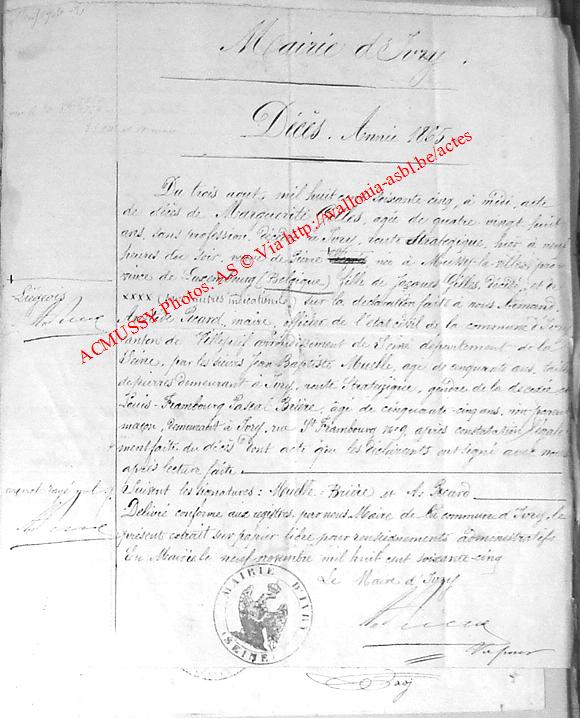 Mairie d'Ivry.
Décès. Année 1865
Du trois aout, mil huit cent soixante cinq, à midi, acte
de décès de Marguerite Gilles, agée de quatre vingt huit
ans, sans profession, décédée à Ivry, route Stratégique, hier à neuf
heures du soir, veuve de Pierre née à Mussy-la-ville, pro
vince de Luxembourg (Belgique) fille de Jacques Gilles, décédé, et de
Liégeois
xxxx (sans autres indications) sur la déclaration fait à nous Armand
Picard, maire, officier de l'état civil de la commune d'Ivry
canton de Villejuif arrondissement de Sceaux département de la
Seine, par les sieurs Jean Baptiste Muelle, age de cinquante ans,
de pierres demeurant à Ivry, route Stratégique, gendre de la décédée et
Louis-Frambourg Pascal Brière, agé de cinquante cinq ans, non parent
maçon, demeurant à Ivry, rue St Frambourg après constatation légale
ment faite du décès Dont acte que les déclarants ont signé avec nous
après lecture faite
rayé nul
Suivent les signatures: Muelle - Brière et A. Picard
Délivré conforme aux registres, par nous Maire de la commune d'Ivry, le
présent extrait sur papier libre pour renseignements administratifs
En Mairie le neuf novembre mil huit cent soixante cinq
Le Maire d'Ivry
MAIRIE D'IVRY
(SEINE)
ACMUSSY Photos. AS © Via http://wallonia-asbl.be/actes